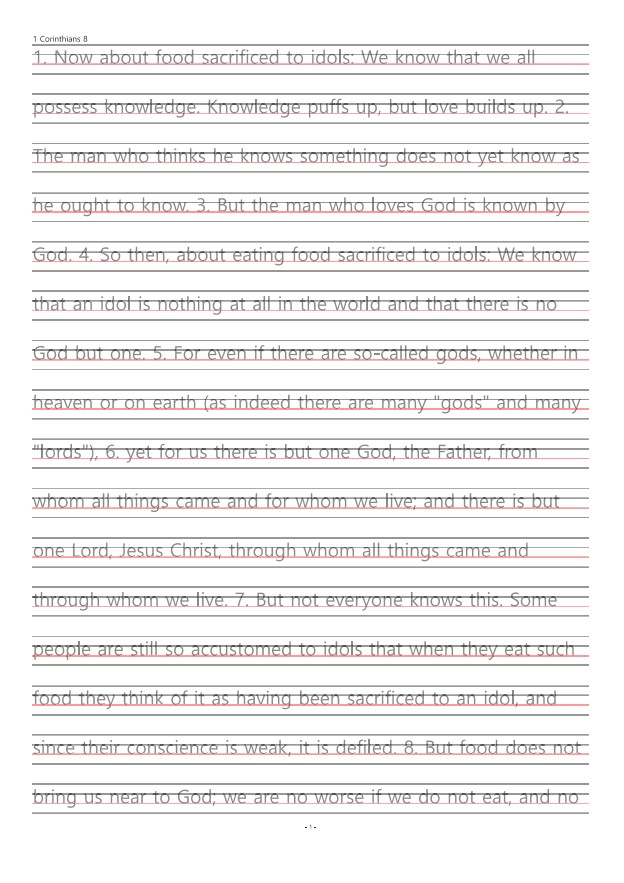 1 Corinthians 8
1. Now about food sacrificed to idols: We know that we all
possess knowledge. Knowledge puffs up, but love builds up. 2.
The man who thinks he knows something does not yet know as
he ought to know. 3. But the man who loves God is known by
God. 4. So then, about eating food sacrificed to idols: We know
that an idol is nothing at all in the world and that there is no
God but one. 5. For even if there are so-called gods, whether in
heaven or on earth (as indeed there are many "gods" and many
"lords"), 6. yet for us there is but one God, the Father, from
whom all things came and for whom we live; and there is but
one Lord, Jesus Christ, through whom all things came and
through whom we live. 7. But not everyone knows this. Some
people are still so accustomed to idols that when they eat such
food they think of it as having been sacrificed to an idol, and
since their conscience is weak, it is defiled. 8. But food does not
bring us near to God; we are no worse if we do not eat, and no
- 1 -